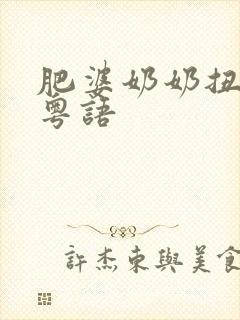 肥婆奶奶扭
粵語
許杰東與美食